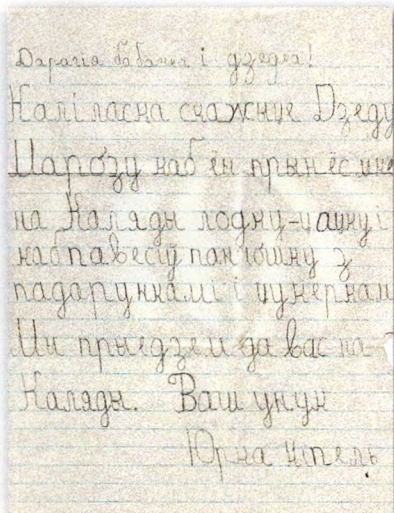 Дарагія і дзедка!
Калі ласка скажыце Дзеду
Марозу каб ён прынёс мне
на Каляды лодку-цацку і
каб павесіў панчошку з
падарункамі і цукеркам
Мы прыедзем да вас на
Каляды. Ваш унук
Юрка Кіпель